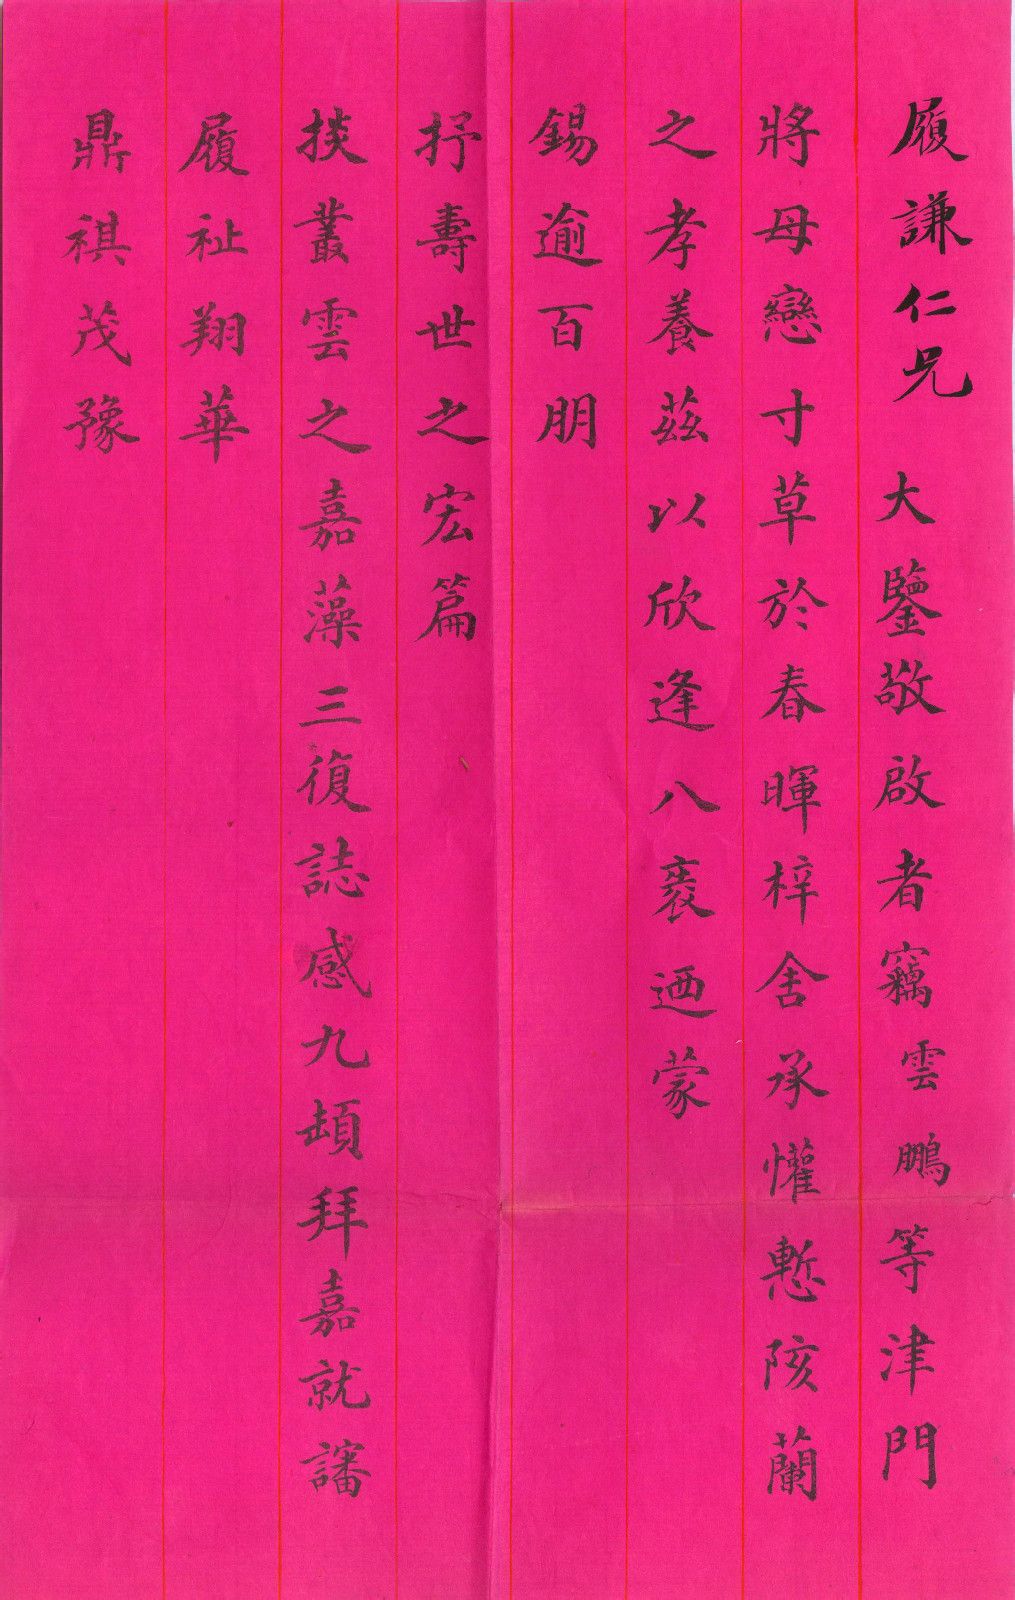 履謙仁兄 大鑒敬啟者竊雲鵬等津門
將母戀寸草於春暉梓舍承懽慙陔蘭
之孝養茲以欣逢八袠迺蒙
錫逾百朋
抒壽世之宏篇
掞叢雲之嘉藻三復誌感九頓拜嘉就諳
履祉翔華
鼎祺茂豫